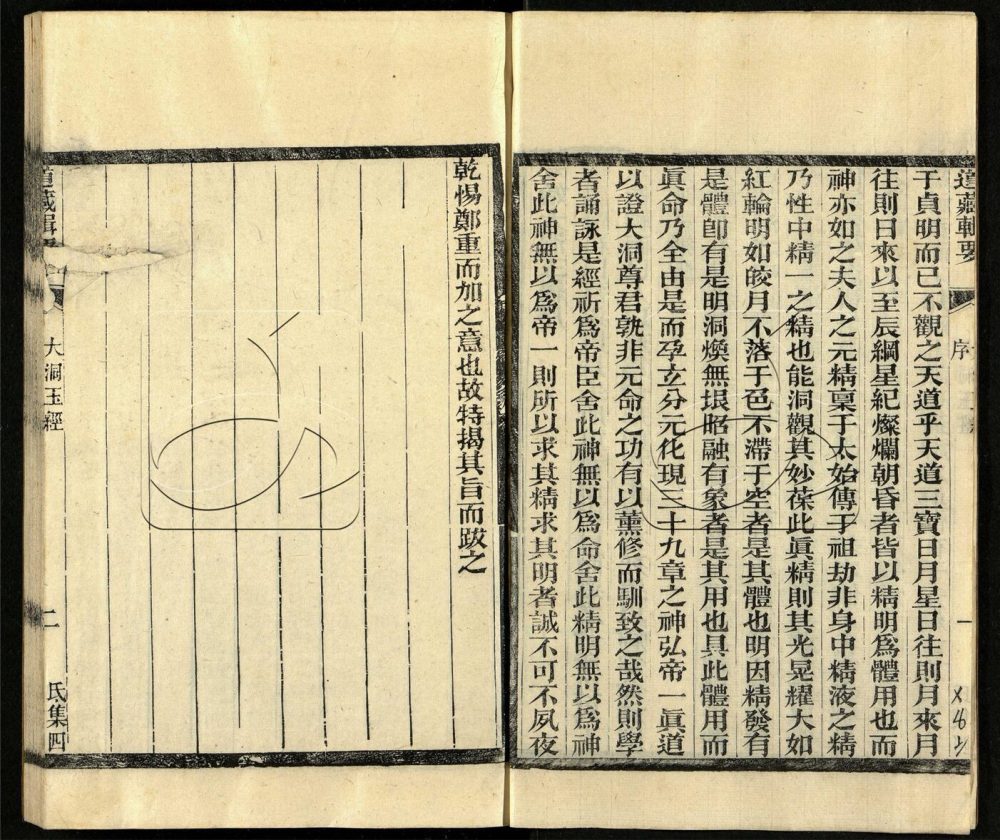 道藏輯要
序
一
于貞明而已不觀之天道乎天道三寶日月星日往則月來月
往則日來以至辰綱星紀燦爛朝昏者皆以精明為體用也而
神亦如之夫人之元精稟于太始傳于祖劫非身中精液之精
乃性中精一之精也能洞觀其妙葆此眞精則其光晃耀大如
紅輪明如皎月不落于色不滯于空者是其體也明因精發有
是體卽有是明洞煥無垠昭融有象者是其用也具此體用而
眞命乃全由是而孕立分元化現三十九章之神弘帝一眞道
以證大洞尊君孰非元命之功有以薰修而馴致之哉然則學
者誦詠是經祈為帝臣舍此神無以為命舍此精明無以為神
舍此神無以為帝一則所以求其精求其明者誠不可不夙夜
乾惕鄭重而加之意也故特揭其旨而跋之
道藏輯
大洞玉經
二
氐集四